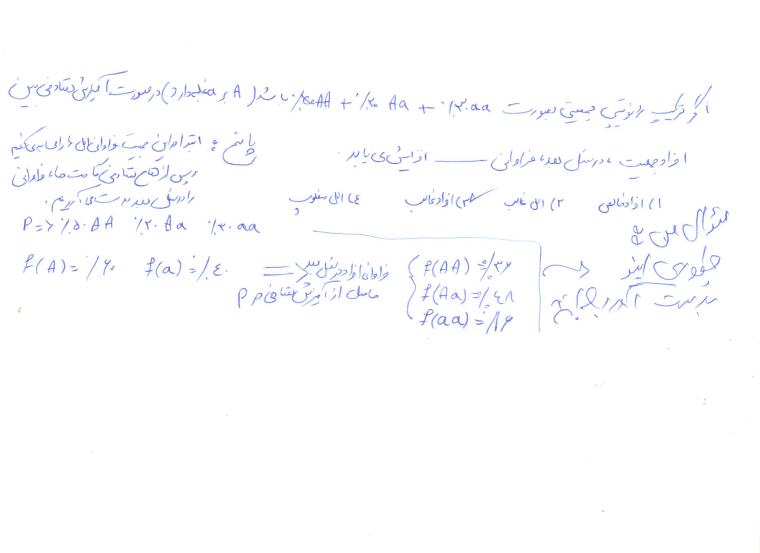 اگر ترکیب ژنوتیپی جمعیتی بصورت ٪۳۰aa + ٪۲۰ Aa + ٪۵۰AA باشد (A بر a غلبه دارد) در صورت آمیزش تصادفی بین
افراد جمعیت، در نسل بعد، فراوانی ــــــ افزایش می یابد.
۱) افراد خالص ۲) الل غالب ۳) افراد غالب ۴) الل مغلوب
پاسخ: ابتدا در این جمعیت فراوانی الل ها را می کنیم
پس از تصادفی گامت ها، فراوانی
را در نسل بعد بدست می آوریم.
P => ٪۵۰ AA ٪۲۰ Aa ٪۳۰ aa
f(A) = ٪۶۰ f(a) = ٪۴۰
فراوانی افراد در نسل
حاصل از آمیزش تصادفی در P
f(AA) = ٪۳۶
f(Aa) = ٪۴۸
f(aa) = ٪۱۶
سؤال من
چطوری اینو
بدست آورد